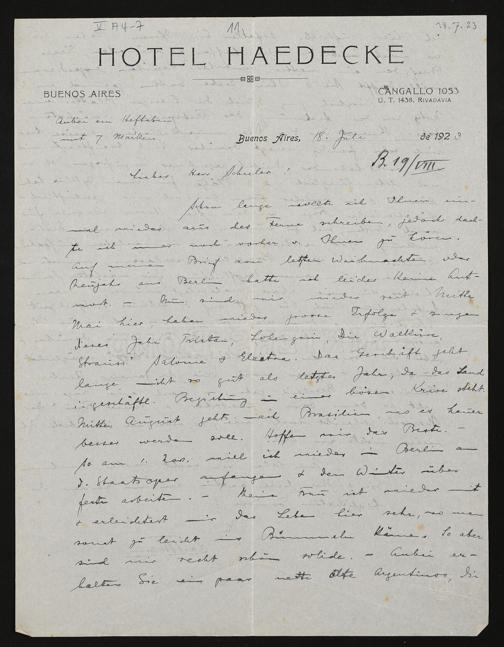 V A4-7
11
28.7.23
HOTEL HAEDECKE
BUENOS AIRES
CANGALLO 1053
U. T. 1438, RIVADAVIA
Anbei ein
mit 7 Marken
Buenos Aires, 18. Juli de 1923
B. 19/VIII
Lieber Herr Scheler!
Schon lange wollte ich Ihnen ein-
mal wieder aus der Ferne schreiben, jedoch dach-
te ich immer noch vorher v. Ihnen zu hören.
Auf meinen Brief von letzter Weihnachten, oder
Neujahr aus Berlin hatte ich leider keine Ant-
wort. – Nun sind wir wieder seit Mitte
Mai hier, haben wieder grosse Erfolge & singen
dieses Jahr Tristan, Lohengrin, Die Walküre,
Strauss' Salome & Electra. Das Geschäft geht
lange nicht so gut als letztes Jahr, da das Land
in geschäftl. Beziehung in einer bösen Krise steht.
Mitte August geht's nach Brasilien wo es heuer
besser werden soll. Hoffen wir das Beste. –
So am 1. Nov. will ich wieder in Berlin an
d. Staatsoper anfangen & den Winter über
feste arbeiten. – Meine Frau ist wieder mit
& erleichtert mir das Leben hier sehr, wo man
sonst zu leicht ins Bummeln käme. So aber
sind wir recht schön solide. – Anbei er-
halten Sie ein paar nette alte Argentinos, die